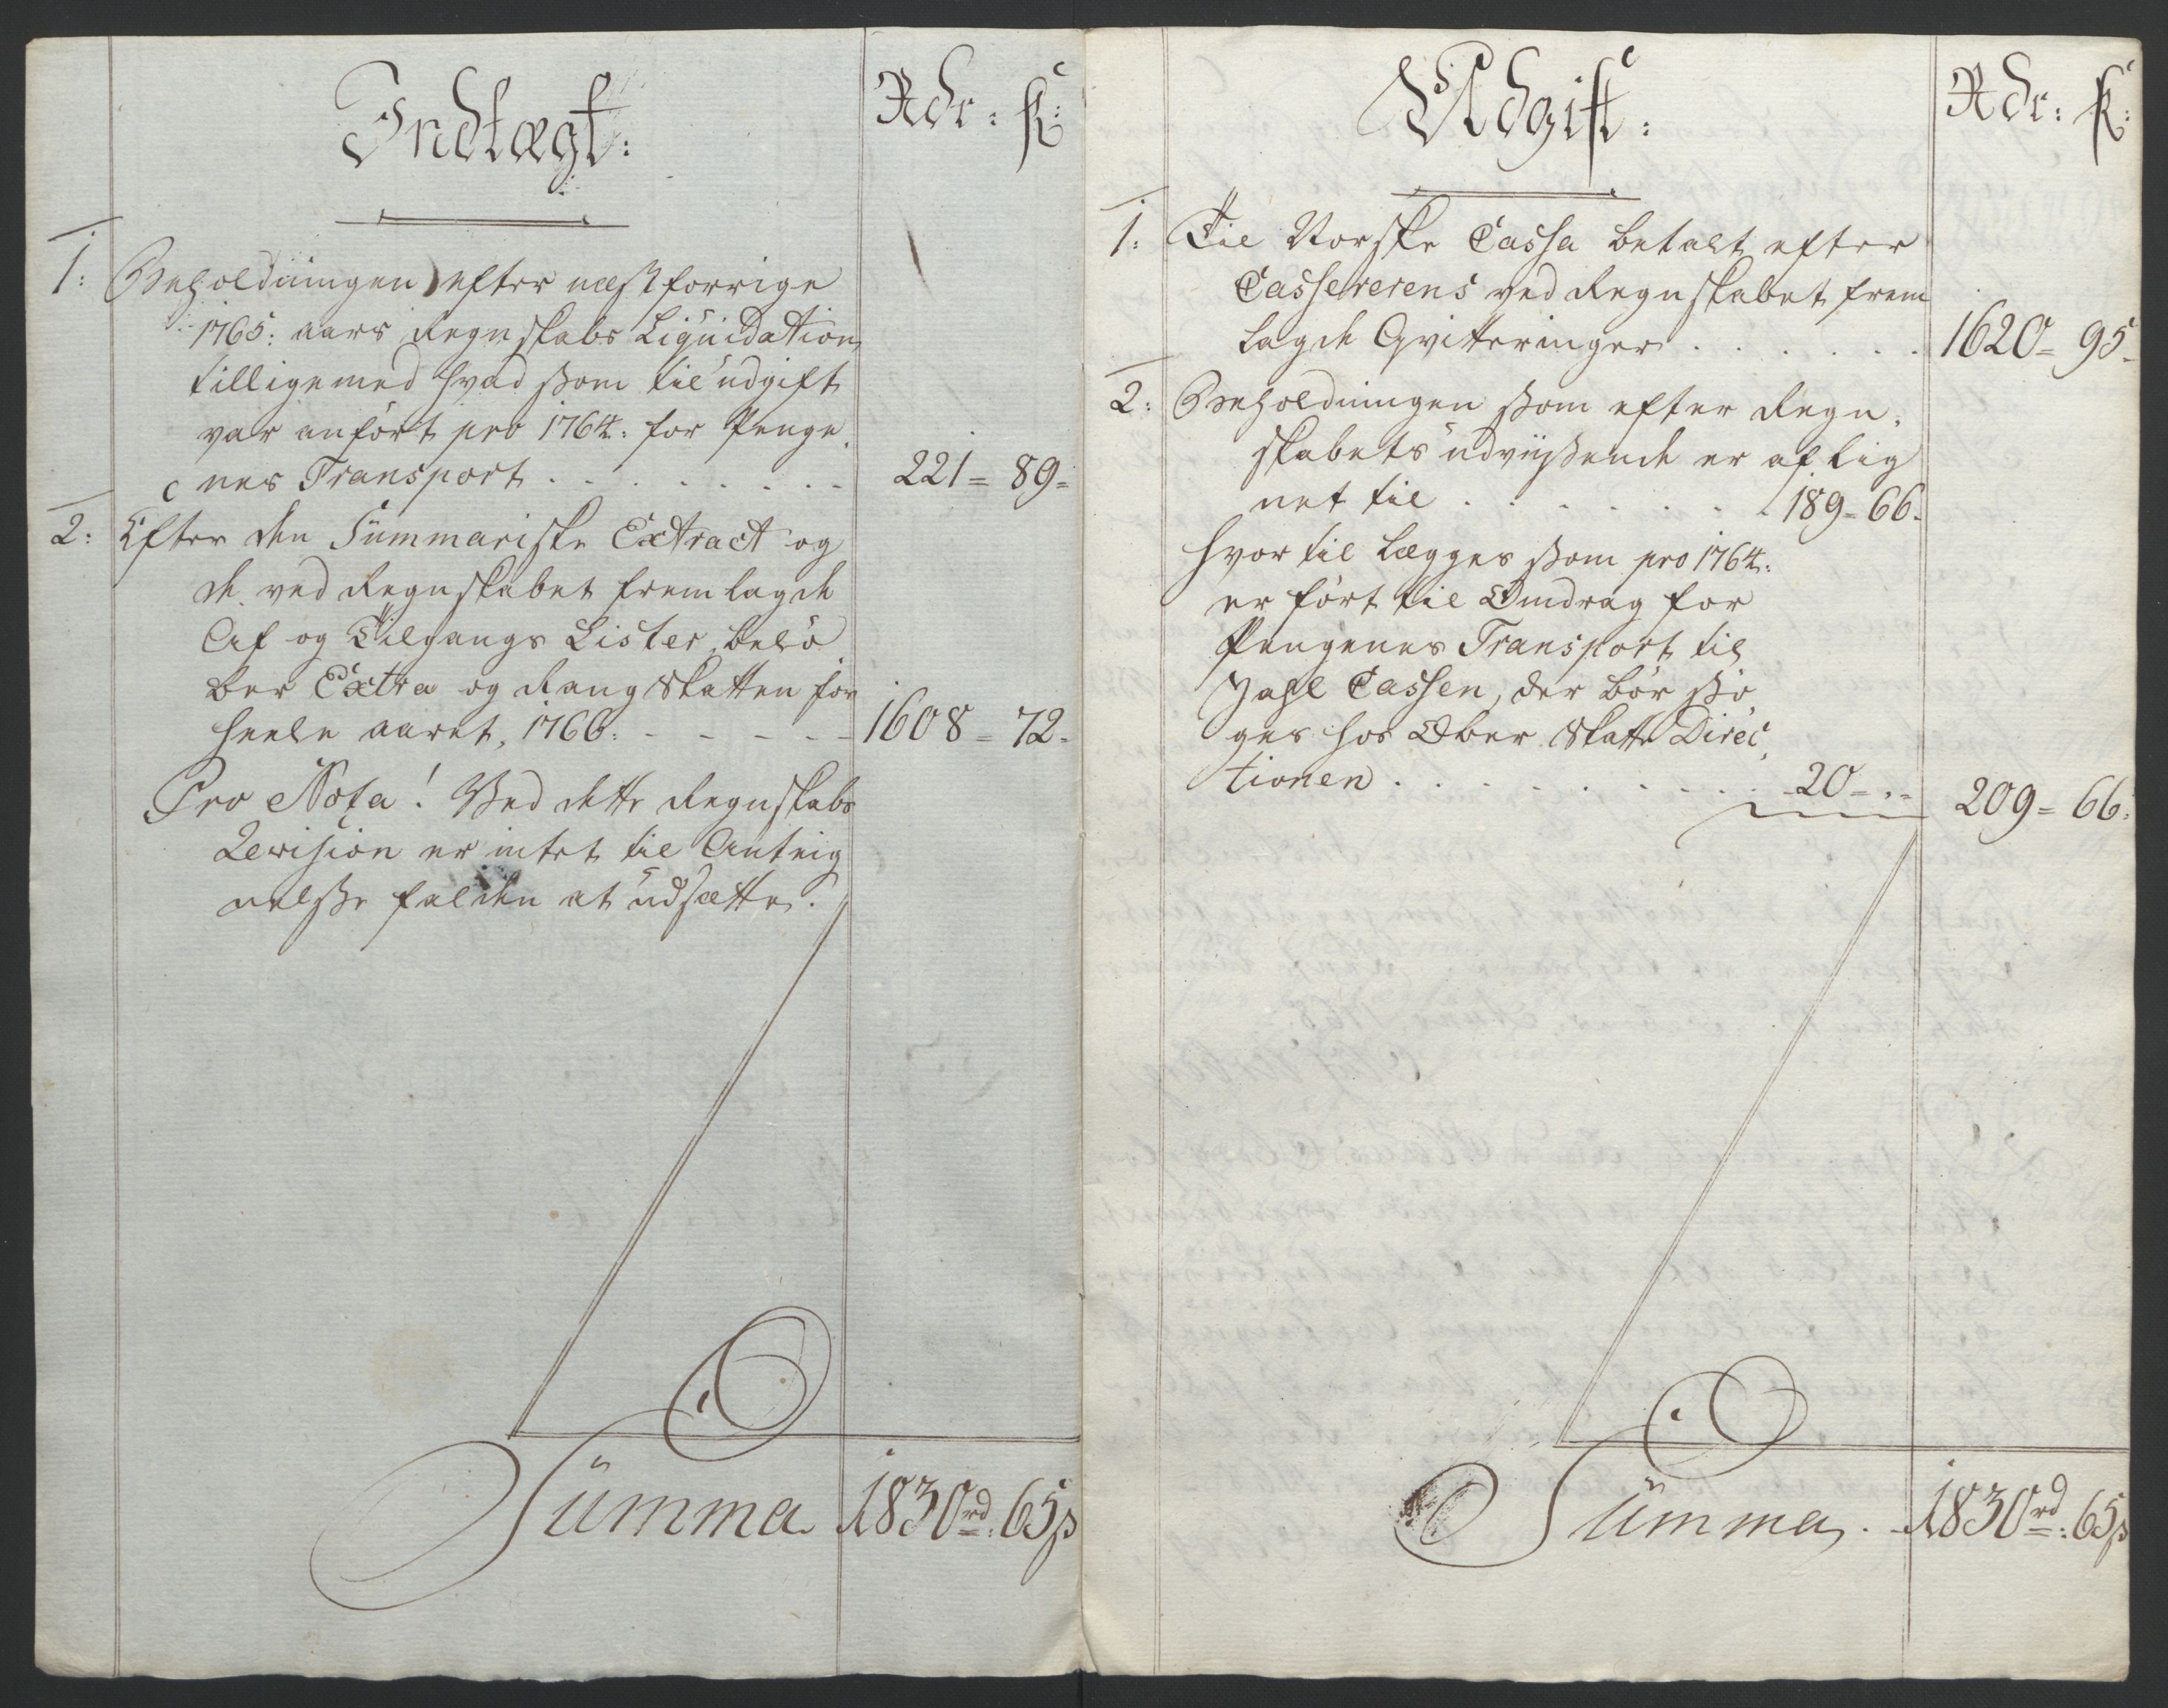 Indtægt:
Rdr: ß:
1: Beholdningen efter næstforrige
1765: aars Regnskabs Liquidation
tilligemed hvad som til udgift
var anført pro 1764: for Penge
nes Transport . . . . . . . . 221 = 89 =
2: Efter den Summariske Extract og
de ved Regnskabet fremlagde
Af og Tilgangs Lister, belø
ber Extra og Rang Skatten for
heele aaret, 1766: - - - - - 1608 = 72 -
Pro Nota! Ved dette Regnskabs
Revision er intet til Anteig
nelse falden at udsætte.
Summa 1830rd: 65ß
Udgift:
Rdr: ß:
1: Til Norske Cassa betalt efter
Cassererens ved Regnskabet frem
lagde Qvitteringer . . . . . . 1620 = 95 -
2: Beholdningen som efter Regn-
skabets udviisende er aflig
net til . . . . . . . 189 = 66 -
hvor til Lægges som pro 1764:
er ført til Omdrag for
Pengenes Transport til
Zahl Cassen, der bør sø
ges hos Ober Skatte Direc
tionen . . . . . . . . . 20 = " = 209 = 66:
Summa . - 1830rd: 65ß